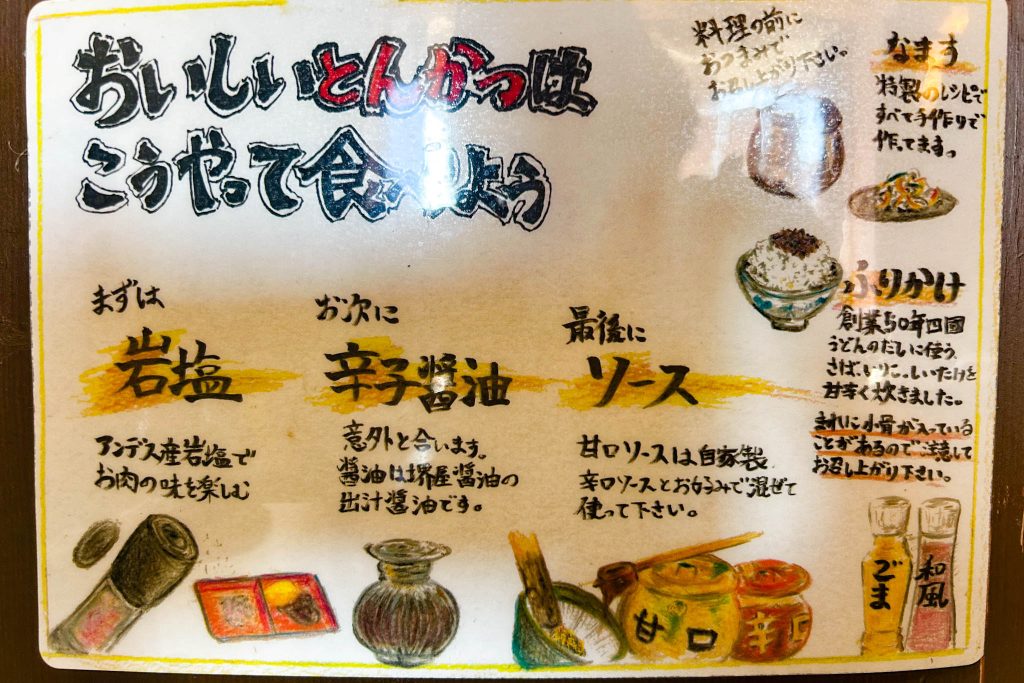 おいしいとんかつは
こうやって食べよう
まずは
岩塩
アンデス産岩塩で
お肉の味を楽しむ
お次に
辛子醤油
意外と合います。
醤油は堺屋醤油の
出汁醤油です。
最後に
ソース
甘口ソースは自家製
辛口ソースとお好みで混ぜて
使って下さい。
料理の前に
おつまみで
お召し上がり下さい。
なます
特製のレシピで
すべて手作りで
作ってます。
ふりかけ
創業50年四國
うどんのだしに使う
さば、いりこ、しいたけを
甘辛く炊きました。
まれに小骨が入っている
ことがあるので注意して
お召し上がり下さい。
甘口
辛口
ごま
和風